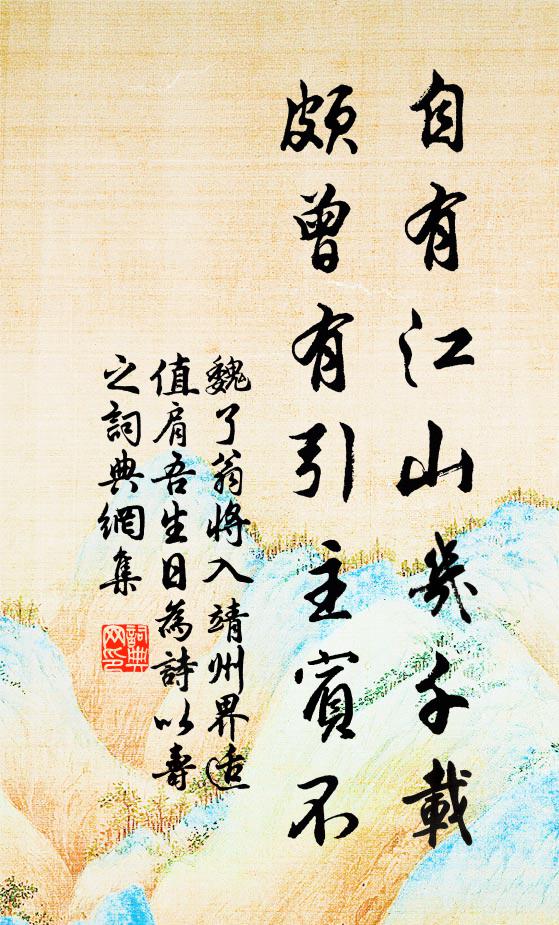 自有江山幾千載
頗曾有引主賓不
魏了翁將入靖州界適
值肩吾生日為詩以壽
之詞典網集
詞典網印